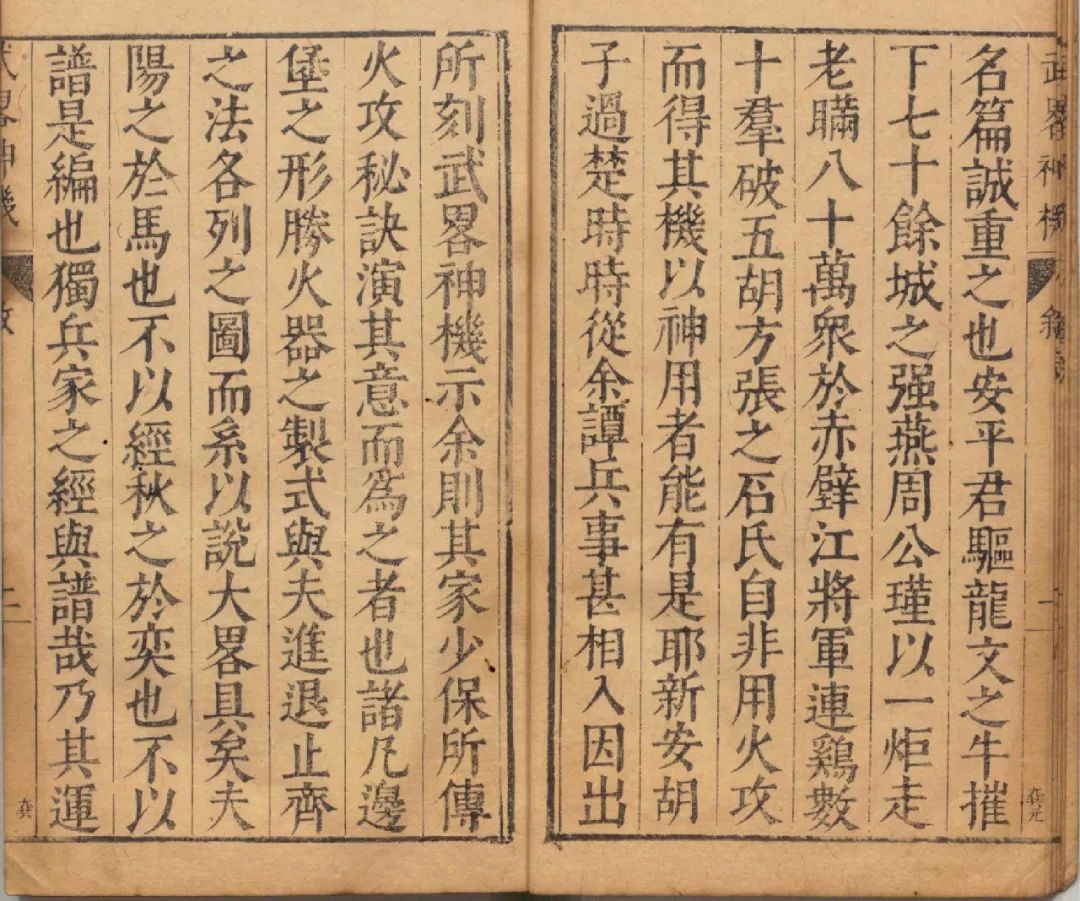 武畧神機
叙
一
名篇誠重之也安平君驅龍文之牛摧
下七十餘城之强燕周公瑾以一炬走
老瞞八十萬衆於赤壁江將軍連鷄數
十羣破五胡方張之石氏自非用火攻
而得其機以神用者能有是耶新安胡
子過楚時時從余譚兵事甚相入因出
所刻武畧神機示余則其家少保所傳
火攻秘訣演其意而爲之者也諸凢邊
堡之形勝火器之製式與夫進退止齊
之法各列之圖而系以說大畧具矣夫
陽之於馬也不以經秋之於奕也不以
譜是編也獨兵家之經與譜哉乃其運
武畧神機
二